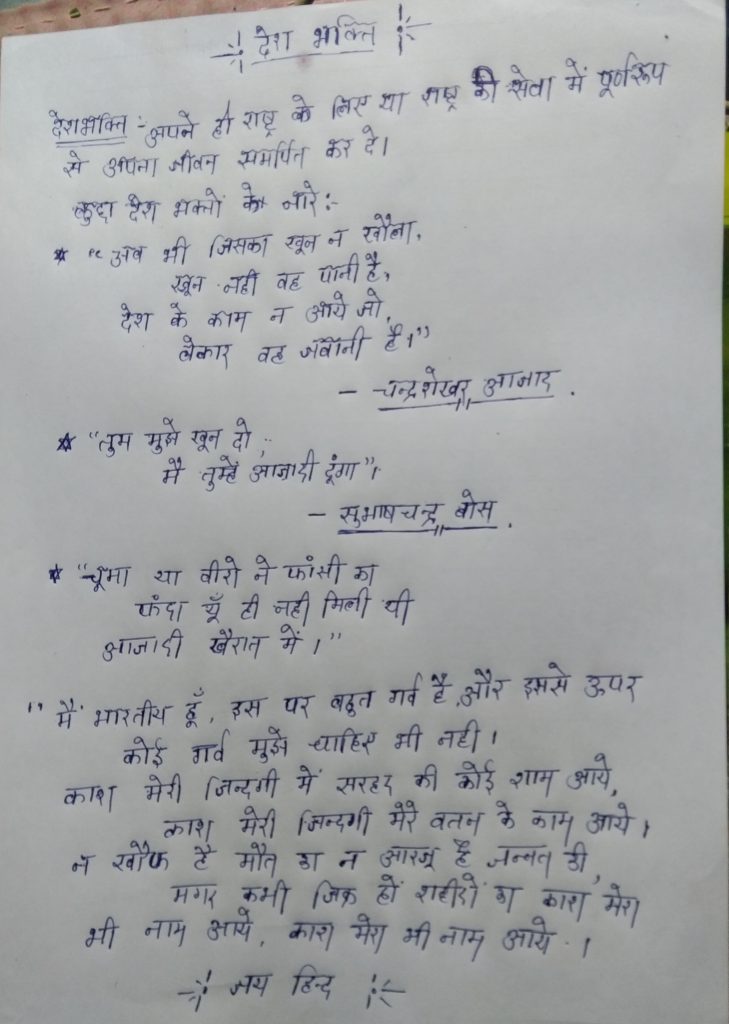 देश भक्ति
देशभक्ति :- अपने ही राष्ट्र के लिए या राष्ट्र की सेवा में पूर्णरूप
से अपना जीवन समर्पित कर दे।
कुछ देश भक्तों के नारे:-
* "अब भी जिसका खून न खौला,
खून नही वह पानी है,
देश के काम न आये जो,
बेकार वह जवानी है।"
- चन्द्रशेखर आजाद .
* "तुम मुझे खून दो,
मै तुम्हें आजादी दूंगा"।
- सुभाषचन्द्र बोस .
* "चूमा था वीरो ने फांसी का
फंदा यूँ ही नही मिली थी
आजादी खैरात में।"
" मैं भारतीय हूँ, इस पर बहुत गर्व है, और इससे ऊपर
कोई गर्व मुझे चाहिए भी नही।
काश मेरी जिन्दगी में सरहद की कोई शाम आये,
काश मेरी जिन्दगी मेरे वतन के काम आये।
न खौफ है मौत का न आरजू है जन्नत की,
मगर कभी जिक्र हों शहीदों का काश मेरा
भी नाम आये, काश मेरा भी नाम आये।
जय हिन्द